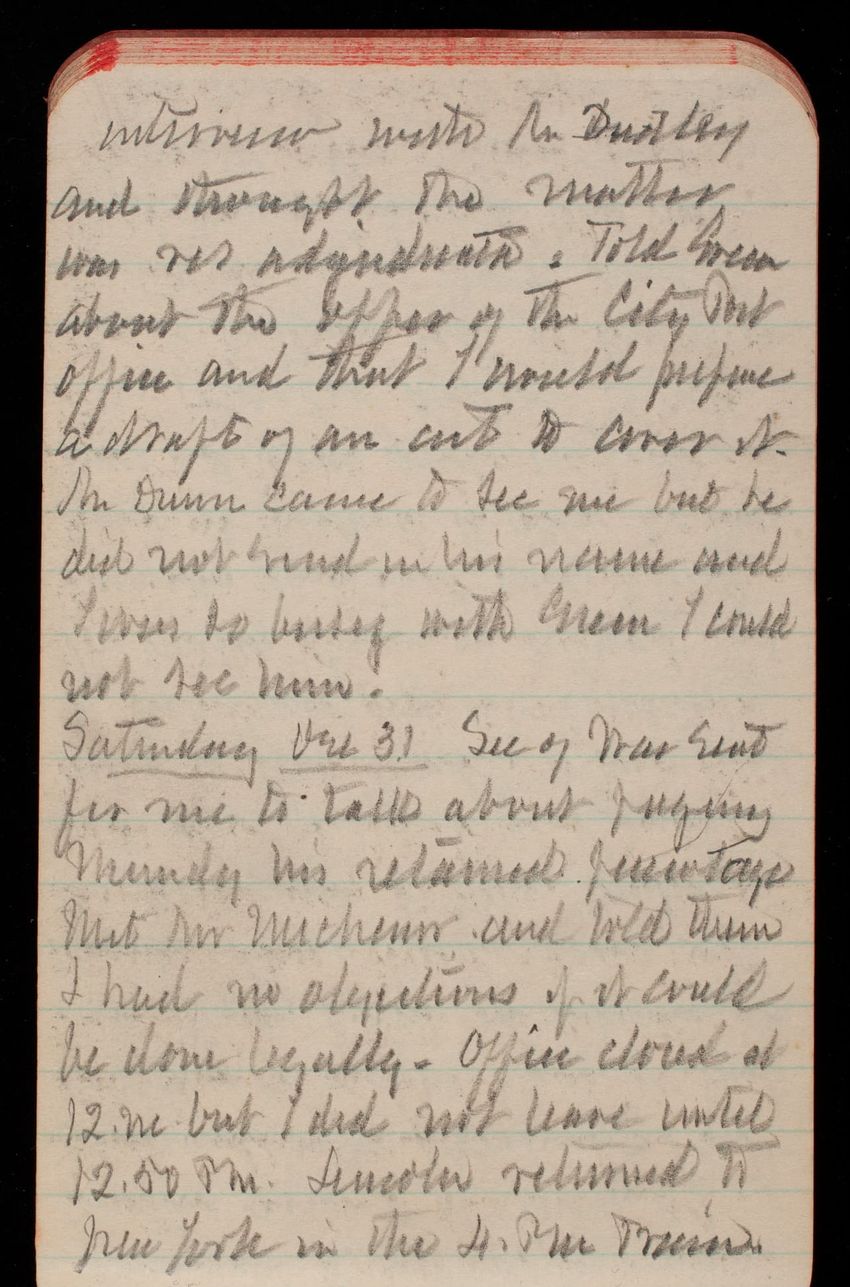 interview with Mr Dudley
and thought the matter
was res adjudicata. Told Green
about the offer of the City Post
office and that I would prepare
a draft of an act to cover it.
Mr Dunn came to see me but he
did not send in his name and
I was so busy with Green I could
not see him.
Saturday Dec 31 Sec of War sent
for me to talk about paying
Mundy his retained percentage
Met Mr Michener and told them
I had no objections if it could
be done legally. Office closed at
12. m but I did not leave until
12.50 PM. Lincoln returned to
New York in the 4. PM Train.